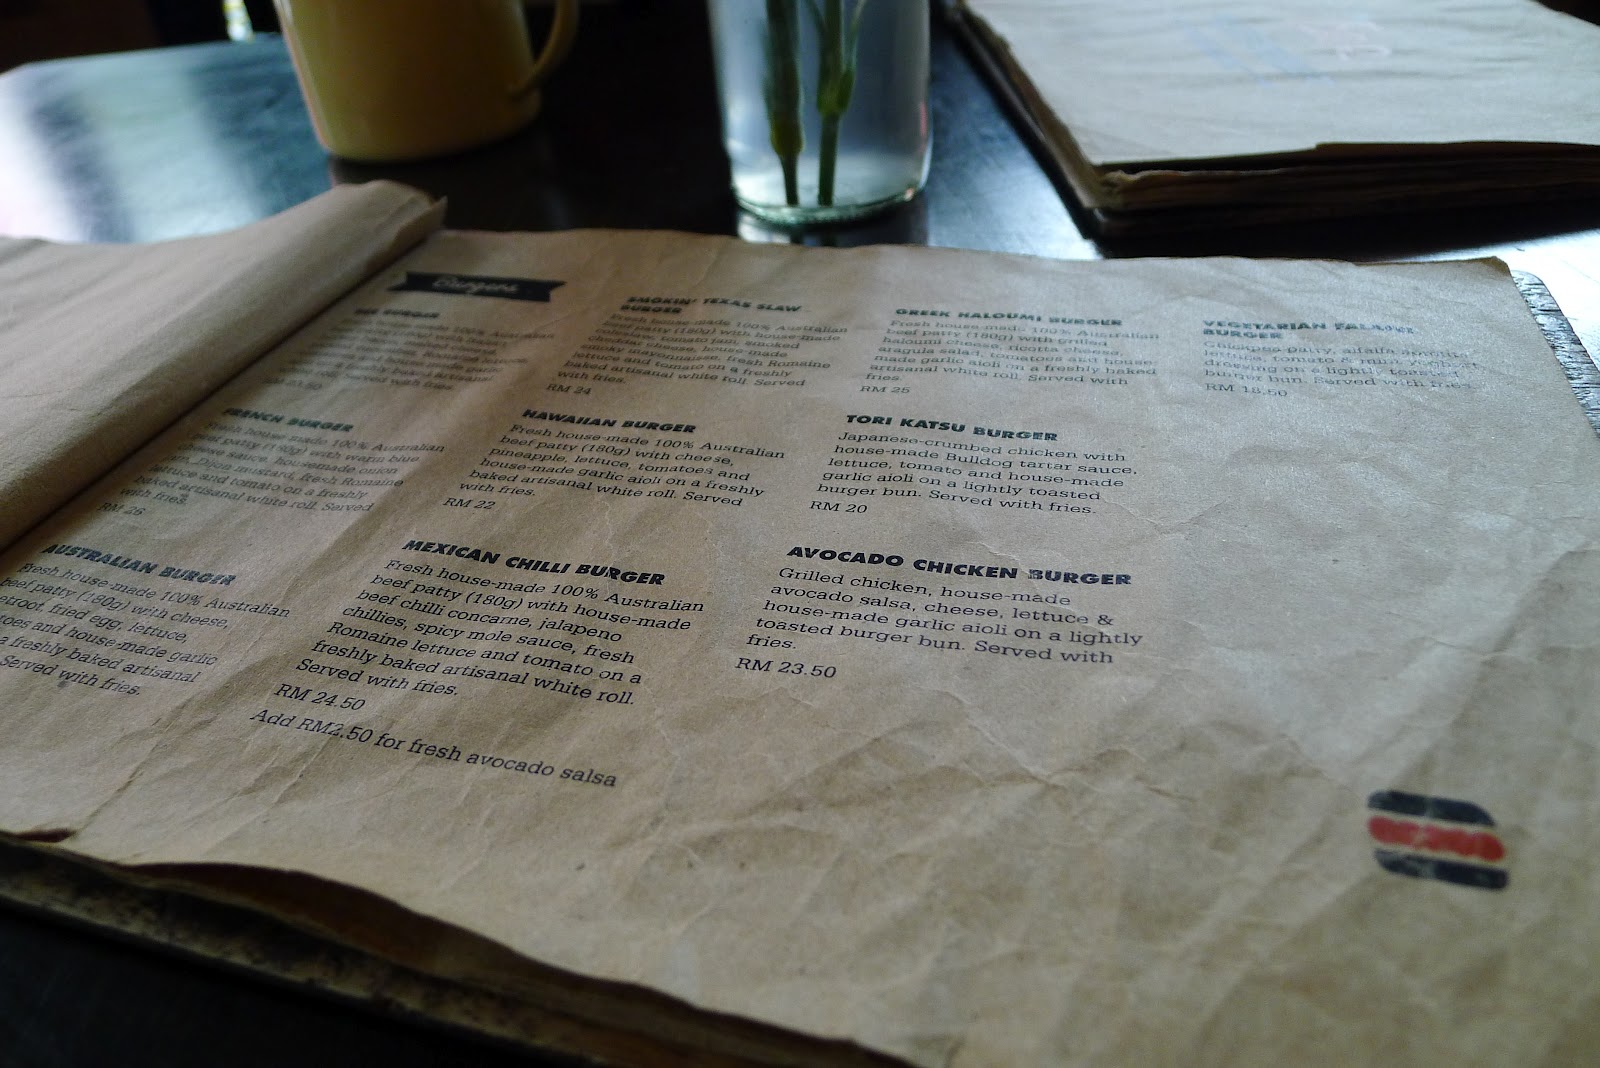 Burgers
BURGER
100% Australian
FRENCH BURGER
Fresh house-made 100% Australian
beef patty (180g) with warm blue
cheese sauce, housemade onion
jam, Dijon mustard, fresh Romaine
lettuce and tomato on a freshly
baked artisanal white roll. Served
with fries.
RM 26
AUSTRALIAN BURGER
Fresh house-made 100% Australian
beef patty (180g) with cheese,
fried egg, lettuce,
and house-made garlic
a freshly baked artisanal
Served with fries.
SMOKIN' TEXAS SLAW
BURGER
Fresh house-made 100% Australian
beef patty (180g) with house-made
tomato jam, smoked
cheddar cheese, house made
smoky mayonnaise, fresh Romaine
lettuce and tomato on a freshly
baked artisanal white roll. Served
with fries.
RM 24
HAWAIIAN BURGER
Fresh house-made 100% Australian
beef patty (180g) with cheese,
pineapple, lettuce, tomatoes and
house-made garlic aioli on a freshly
baked artisanal white roll. Served
with fries.
RM 22
MEXICAN CHILLI BURGER
Fresh house-made 100% Australian
beef patty (180g) with house-made
beef chilli concarne, jalapeno
chillies, spicy mole sauce, fresh
Romaine lettuce and tomato on a
freshly baked artisanal white roll.
Served with fries.
RM 24.50
Add RM2.50 for fresh avocado salsa
GREEK HALOUMI BURGER
Fresh house-made 100% Australian
beef patty (180g) with grilled
haloumi cheese, ricotta cheese,
aragula salad, tomatoes and house
made garlic aioli on a freshly baked
artisanal white roll. Served with
fries.
RM 25
TORI KATSU BURGER
Japanese-crumbed chicken with
house-made Bulldog tartar sauce,
lettuce, tomato and house-made
garlic aioli on a lightly toasted
burger bun. Served with fries.
RM 20
AVOCADO CHICKEN BURGER
Grilled chicken, house-made
avocado salsa, cheese, lettuce &
house-made garlic aioli on a lightly
toasted burger bun. Served with
fries.
RM 23.50
VEGETARIAN FALAFEL
BURGER
patty, alfalfa sprouts,
lettuce, tomato & mint yoghurt
dressing on a lightly toasted
burger bun. Served with fries.
RM 18.50